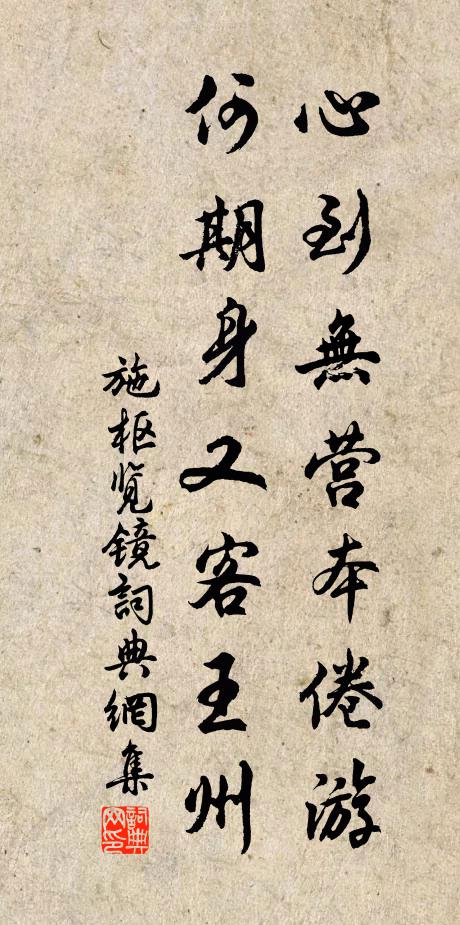 心到無营本倦游
何期身又客王州
施枢览镜詞典網集
詞典网印